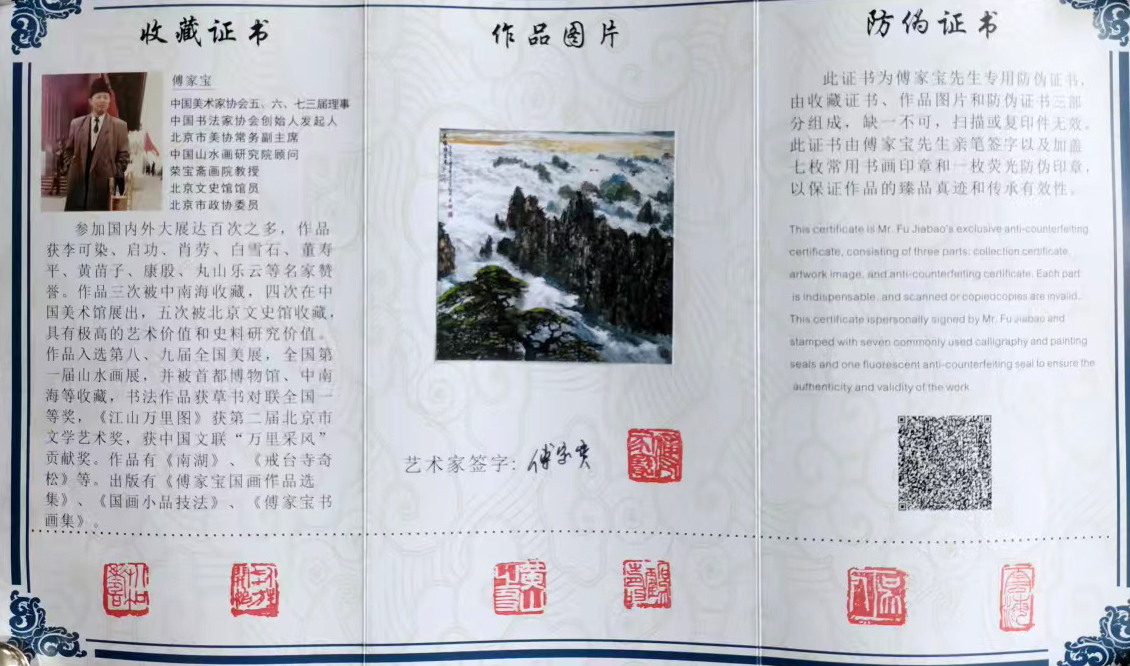 收藏证书
傅家宝
中国美术家协会五、六、七三届理事
中国书法家协会创始人发起人
北京市美协常务副主席
中国山水画研究院顾问
荣宝斋画院教授
北京文史馆馆员
北京市政协委员
参加国内外大展达百次之多，作品
获李可染、启功、肖劳、白雪石、董寿
平、黄苗子、康殷、丸山乐云等名家赞
誉。作品三次被中南海收藏，四次在中
国美术馆展出，五次被北京文史馆收藏，
具有极高的艺术价值和史料研究价值。
作品入选第八、九届全国美展，全国第
一届山水画展，并被首都博物馆、中南
海等收藏，书法作品获草书对联全国一
等奖，《江山万里图》获第二届北京市
文学艺术奖，获中国文联“万里采风”
贡献奖。作品有《南湖》、《戒台寺奇
松》等。出版有《傅家宝国画作品选
集》、《国画小品技法》、《傅家宝书
画集》。
作品图片
艺术家签字：傅家宝
防伪证书
此证书为傅家宝先生专用防伪证书，
由收藏证书、作品图片和防伪证书三部
分组成，缺一不可，扫描或复印件无效。
此证书由傅家宝先生亲笔签字以及加盖
七枚常用书画印章和一枚荧光防伪印章，
以保证作品的臻品真迹和传承有效性。
This certificate is Mr. Fu Jiabao's exclusive anti-counterfeiting
certificate, consisting of three parts: collection certificate,
artwork image, and anti-counterfeiting certificate. Each part
is indispensable, and scanned or copiedcopies are invalid.
This certificate ispersonally signed by Mr. Fu Jiabao and
stamped with seven commonly used calligraphy and painting
seals and one fluorescent anti-counterfeiting seal to ensure the
authenticity and validity of the work